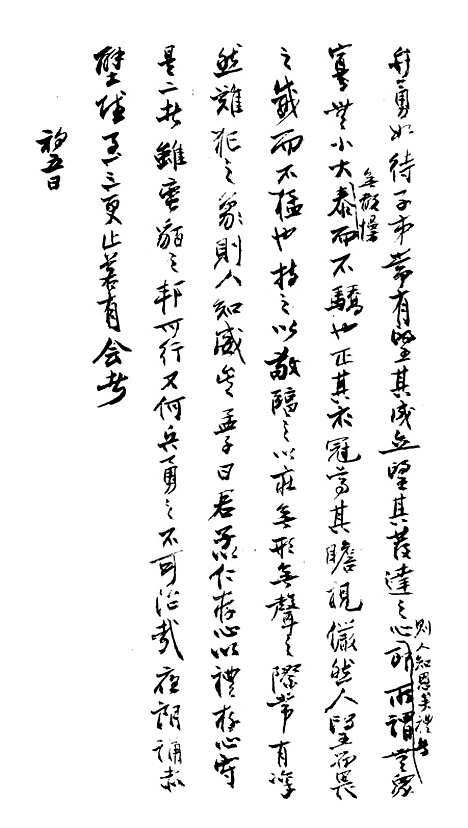 弁勇如待子弟常有望其成立望其發達之心則人知恩矣禮者即所謂無眾
寡無小大無敢慢泰而不驕也正其衣冠尊其瞻視儼然人望而畏
之威而不猛也持之以敬臨之以莊無形無聲之際常有凜
然難犯之象則人知威矣孟子曰君子以仁存心以禮存心守
是二者雖蠻貊之邦可行又何兵勇之不可治哉夜朗誦赤
壁賦至三更止若有会者
初五日